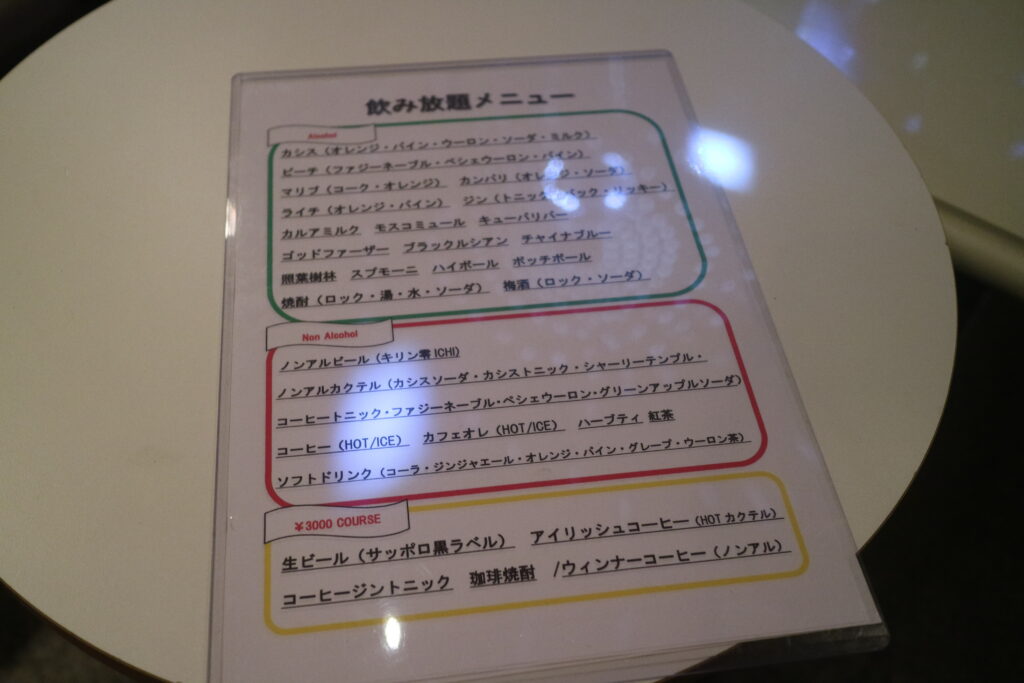 飲み放題メニュー
Alcohol
カシス（オレンジ・パイン・ウーロン・ソーダ・ミルク）
ピーチ（ファジーネーブル・ペシェウーロン・パイン）
マリブ（コーク・オレンジ） カンパリ（オレンジ・ソーダ）
ライチ（オレンジ・パイン） ジン（トニック・バック・リッキー）
カルアミルク モスコミュール キューバリバー
ゴッドファーザー ブラックルシアン チャイナブルー
照葉樹林 スプモーニ ハイボール ボッチボール
焼酎（ロック・湯・水・ソーダ） 梅酒（ロック・ソーダ）
Non Alcohol
ノンアルビール（キリン零ICHI)
ノンアルカクテル（カシスソーダ・カシストニック・シャーリーテンプル・
コーヒートニック・ファジーネーブル・ペシェウーロン・グリーンアップルソーダ）
コーヒー（HOT/ICE） カフェオレ（HOT/ICE） ハーブティ 紅茶
ソフトドリンク（コーラ・ジンジャエール・オレンジ・パイン・グレープ・ウーロン茶）
￥3000 COURSE
生ビール（サッポロ黒ラベル） アイリッシュコーヒー（HOTカクテル）
コーヒージントニック 珈琲焼酎 /ウィンナーコーヒー（ノンアル）